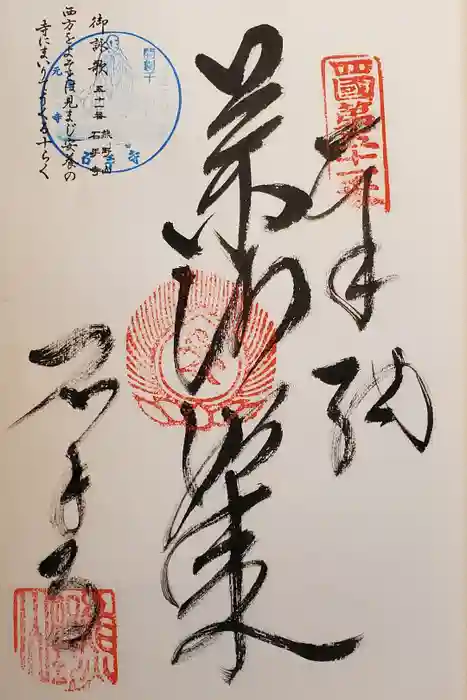 四國第五十一番
奉納
薬師如来
石手寺
御詠歌 五十一番 熊野山 石手寺
西方をよそとは見まじ安養の
寺にまいりてうくる十らく
石手寺